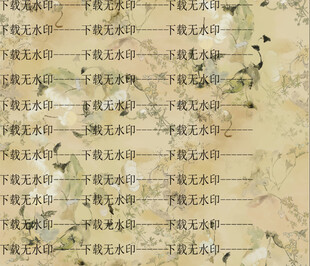 下载无水印——下载无水印——下载无水印——
下载无水印——下载无水印——下载无水印——
下载无水印——下载无水印——下载无水印——
下载无水印——下载无水印——下载无水印——
下载无水印——下载无水印——下载无水印——
下载无水印——下载无水印——下载无水印——
下载无水印——下载无水印——下载无水印——
下载无水印——下载无水印——下载无水印——
下载无水印——下载无水印——下载无水印——
下载无水印——下载无水印——下载无水印——
下载无水印——下载无水印——下载无水印——